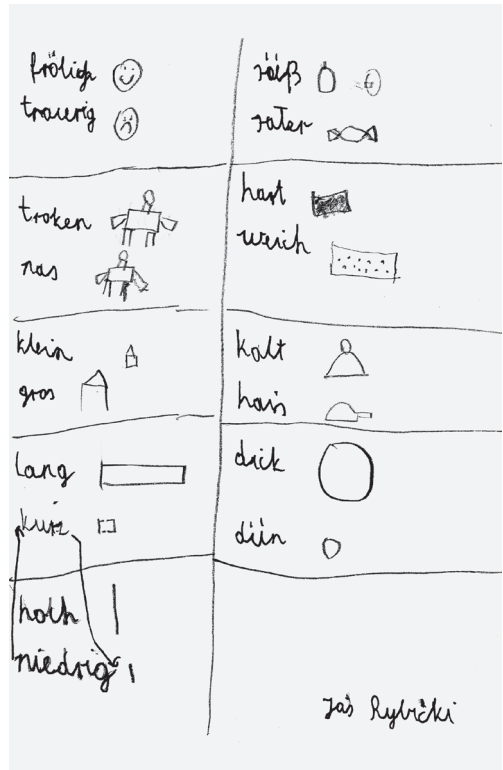 frölich
traurig
troken
nas
klein
gros
lang
kurz
hoch
niedrig
hart
weich
kalt
hais
dick
düün
Jaś Rybicki